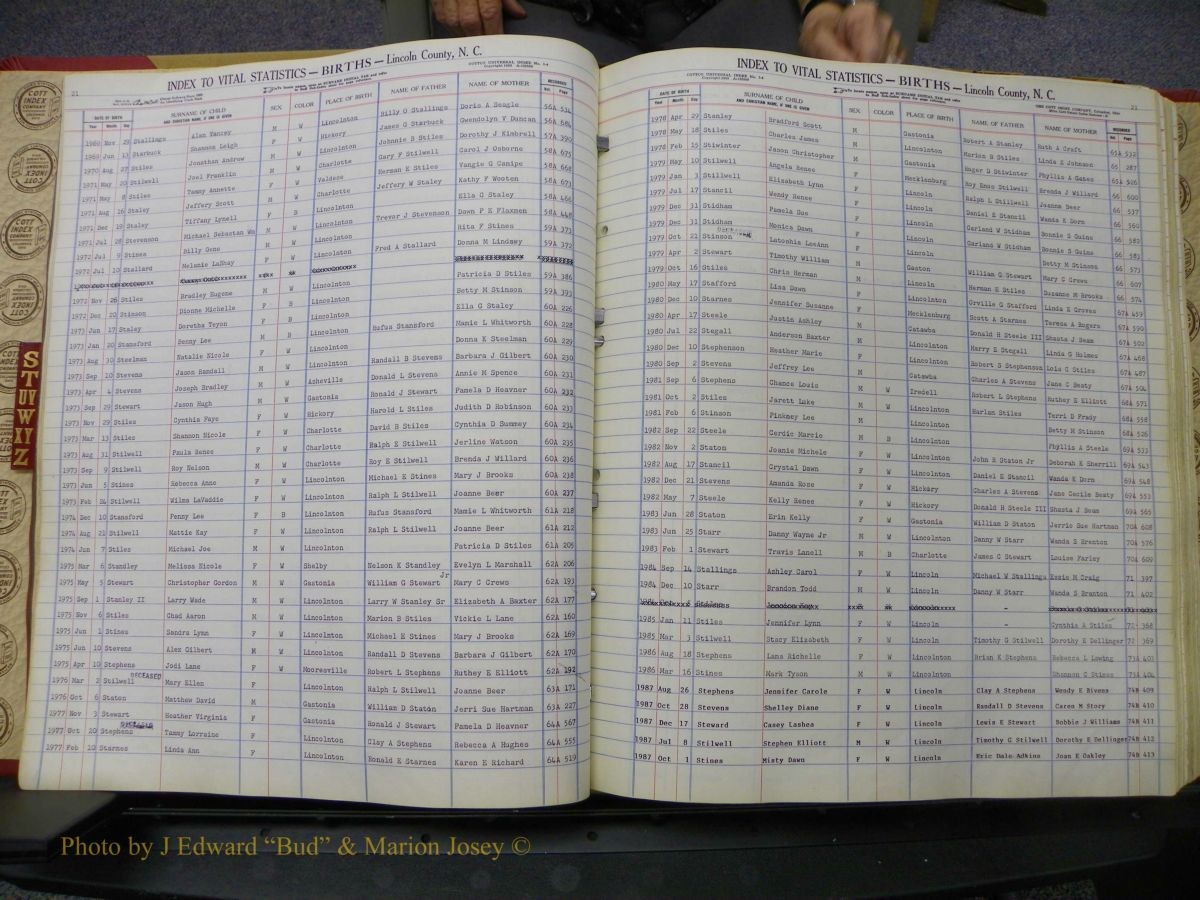 INDEX TO VITAL STATISTICS — BIRTHS — Lincoln County, N. C.
COTTON UNIVERSAL INDEX No. 1-4
21
DATE OF BIRTH SURNAME OF CHILD SEX COLOR PLACE OF BIRTH NAME OF FATHER NAME OF MOTHER RECORDED
Year Month Day AND CHRISTIAN NAME, IF ONE IS GIVEN Book Page
1968 Nov 29 Stallings Alan Yancey M W Lincolnton Billy O Stallings Doris A Seagle 56A 534
1969 Jun 13 Starbuck Shannon Leigh F W Hickory James G Starbuck Gwendolyn F Duncan 56A 684
1970 Aug 27 Stiles Jonathan Andrew M W Lincolnton Johnnie B Stiles Dorothy J Kimbrell 57A 390
1971 May 20 Stilwell Joel Franklin M W Charlotte Gary F Stilwell Carol J Osborne 58A 675
1971 May 8 Stiles Tammy Annette F W Valdese Herman E Stiles Vangie G Canipe 58A 668
1971 Aug 16 Staley Jeffery Scott M W Charlotte Jeffery W Staley Kathy F Wooten 58A 673
1971 Dec 19 Staley Tiffany Lynell F B Lincolnton Ella G Staley 58A 466
1971 Jul 28 Stevenson Michael Sebastan Wm Lincolnton Trevor J Stevenson Dawn P E Flaxmen 58A 448
1972 Jul 9 Stines Billy Gene M W Lincolnton Rita F Stines 59A 371
1972 Jul 10 Stallard Melanie LaShay F W Lincolnton Fred A Stallard Donna M Lindsey 59A 372
1972 Nov 26 Stiles Bradley Eugene M W Lincolnton Patricia D Stiles 59A 386
1972 Dec 20 Stinson Dionne Michelle F B Lincolnton Betty M Stinson 59A 393
1973 Jun 17 Staley Doretha Teyon F B Lincolnton Ella G Staley 60A 226
1973 Jan 20 Stansford Benny Lee M B Lincolnton Rufus Stansford Mamie L Whitworth 60A 228
1973 Aug 30 Steelman Natalie Nicole F W Lincolnton Donna K Steelman 60A 229
1973 Sep 10 Stevens Jason Randall M W Lincolnton Randall B Stevens Barbara J Gilbert 60A 230
1973 Apr 4 Stevens Joseph Bradley M W Asheville Donald L Stevens Annie M Spence 60A 231
1973 Sep 29 Stewart Jason Hugh M W Gastonia Ronald J Stewart Pamela D Heavner 60A 232
1973 Nov 29 Stiles Cynthia Faye F W Hickory Harold L Stiles Judith D Robinson 60A 233
1973 Mar 13 Stiles Shannon Nicole F W Charlotte David B Stiles Cynthia D Summey 60A 234
1973 Aug 31 Stilwell Paula Renee F W Charlotte Ralph E Stilwell Jerline Watson 60A 235
1973 Sep 9 Stilwell Roy Nelson M W Charlotte Roy E Stilwell Brenda J Willard 60A 236
1973 Jun 5 Stines Rebecca Anne F W Lincolnton Michael E Stines Mary J Brooks 60A 238
1973 Feb 24 Stilwell Wilma LaVaddie F W Lincolnton Ralph L Stilwell Joanne Beer 60A 237
1974 Dec 10 Stansford Penny Lee F B Lincolnton Rufus Stansford Mamie L Whitworth 61A 218
1974 Aug 21 Stilwell Mattie Kay F W Lincolnton Ralph L Stilwell Joanne Beer 61A 212
1974 Jun 7 Stiles Michael Joe M W Lincolnton Patricia D Stiles 61A 205
1975 Mar 6 Standley Melissa Nicole F W Shelby Nelson K Standley Evelyn L Marshall 62A 206
1975 May 5 Stewart Christopher Gordon M W Gastonia William G Stewart Jr Mary C Crews 62A 193
1975 Sep 1 Stanley II Larry Wade M W Lincolnton Larry W Stanley Sr Elizabeth A Baxter 62A 177
1975 Nov 6 Stiles Chad Aaron M W Lincolnton Marion B Stiles Vickie L Lane 62A 160
1975 Jun 1 Stines Sandra Lynn F W Lincolnton Michael E Stines Mary J Brooks 62A 169
1975 Jun 10 Stevens Alex Gilbert M W Lincolnton Randall D Stevens Barbara J Gilbert 62A 170
1975 Apr 10 Stephens Jodi Lane F W Mooresville Robert L Stephens Ruthey E Elliott 62A 192
1976 Mar 2 Stilwell DECEASED Mary Ellen F Lincolnton Ralph L Stilwell Joanne Beer 63A 171
1976 Oct 6 Staton Matthew David M Gastonia William D Staton Jerri Sue Hartman 63A 227
1977 Nov 3 Stewart Heather Virginia F Gastonia Ronald J Stewart Pamela D Heavner 64A 567
1977 Oct 20 Stephens Tammy Lorraine F Lincolnton Clay A Stephens Rebecca A Hughes 64A 555
1977 Feb 10 Starnes Linda Ann F Lincolnton Ronald E Starnes Karen E Richard 64A 519
INDEX TO VITAL STATISTICS — BIRTHS — Lincoln County, N. C.
COTTON UNIVERSAL INDEX No. 1-4
21
DATE OF BIRTH SURNAME OF CHILD SEX COLOR PLACE OF BIRTH NAME OF FATHER NAME OF MOTHER RECORDED
Year Month Day AND CHRISTIAN NAME, IF ONE IS GIVEN Book Page
1978 Apr 29 Stanley Bradford Scott M Gastonia Robert A Stanley Ruth A Craft 65A 532
1978 May 18 Stiles Charles James M Lincoln Marion B Stiles Linda E Johnson 65 287
1978 Feb 15 Stiwinter Jason Christopher M Gastonia Roger D Stiwinter Angela R Gates 65A 526
1979 May 10 Stilwell Angela Renee F Mecklenburg Roy Enos Stilwell Brenda J Willard 66 600
1979 Jan 3 Stillwell Elizabeth Lynn F Lincoln Ralph L Stillwell Joanna Beer 66 537
1979 Jul 17 Stancil Wendy Renee F Lincoln Daniel E Stancil Wanda K Dorn 66 560
1979 Dec 31 Stidham Pamela Sue F Lincoln Garland W Stidham Bonnie S Guinn 66 582
1979 Dec 31 Stidham Monica Dawn F Lincoln Garland W Stidham Bonnie S Guinn 66 583
1979 Oct 21 Stinson Latoshia LeeAnn F Lincoln Betty M Stinson 66 573
1979 Apr 2 Stewart Timothy William M Gaston William G Stewart Mary C Crews 66 607
1979 Oct 16 Stiles Chris Herman M Lincoln Herman E Stiles Suzanne M Brooks 66 574
1980 May 17 Stafford Lisa Dawn F Lincoln Orville G Stafford Linda K Groves 67A 459
1980 Dec 10 Starnes Jennifer Susanne F Mecklenburg Scott A Starnes Teresa A Rogers 67A 590
1980 Apr 17 Steele Justin Ashley M Lincoln Donald H Steele III Shasta J Beam 67A 502
1980 Jul 22 Stegall Anderson Baxter M Catawba Harry E Stegall Linda G Holmes 67A 468
1980 Dec 10 Stephenson Heather Marie F Lincoln Robert S Stephenson Lois G Stiles 67A 487
1980 Sep 2 Stevens Jeffrey Lee M Catawba Charles A Stevens Jane C Beaty 67A 504
1981 Sep 6 Stephens Chance Louis M W Iredell Robert L Stephens Ruthey E Elliott 68A 571
1981 Oct 2 Stiles Jarett Luke M W Lincolnton Harlan Stiles Terri D Frady 68A 558
1981 Feb 6 Stinson Pinkney Lee M Lincoln Betty M Stinson 68A 526
1982 Sep 22 Steele Cerdic Marcio M B Lincolnton Phyllis A Steele 69A 533
1982 Nov 2 Staton Joanie Michele F W Lincolnton John R Staton Jr Deborah K Sherrill 69A 543
1982 Aug 17 Stancil Crystal Dawn F W Lincolnton Daniel E Stancil Wanda K Dorn 69A 548
1982 Dec 21 Stevens Amanda Rose F W Hickory Charles A Stevens Jane Cecile Beaty 69A 553
1982 May 7 Steele Kelly Renee F W Hickory Donald H Steele III Shasta J Bean 69A 565
1983 Jun 28 Staton Erin Kelly F W Gastonia William D Staton Jerrie Sue Hartman 70A 608
1983 Jun 25 Starr Danny Wayne Jr M W Lincolnton Danny W Starr Wanda S Brenton 70A 576
1983 Feb 1 Stewart Travis Lanell M B Charlotte James C Stewart Louise Farley 70A 609
1984 Sep 14 Stallings Ashley Carol F W Lincoln Michael W Stallings Essie M Craig 71 397
1984 Dec 10 Starr Brandon Todd M W Lincoln Danny W Starr Wanda S Brenton 71 402
1985 Jan 11 Stiles Jennifer Lynn F W Lincoln - Cynthia A Stiles 72 368
1985 Mar 3 Stilwell Stacy Elizabeth F W Lincoln Timothy G Stilwell Dorothy E Dellinger 72 369
1986 Aug 18 Stephens Lana Richelle F W Lincolnton Brian K Stephens Rebecca L Lowing 73A 403
1986 Mar 16 Stines Mark Tyson M W Lincolnton Shannon C Stines 73A 404
1987 Aug 26 Stephens Jennifer Carole F W Lincoln Clay A Stephens Wendy E Bivens 74B 409
1987 Oct 28 Stevens Shelley Diane F W Lincoln Randall D Stevens Caren M Story 74B 410
1987 Dec 17 Steward Casey Lashea F W Lincoln Lewis E Stewart Bobbie J Williams 74B 411
1987 Jul 8 Stilwell Stephen Elliott M W Lincoln Timothy G Stilwell Dorothy E Dellinger 74B 412
1987 Oct 1 Stines Misty Dawn F W Lincoln Eric Dale Adkins Joan E Oakley 74B 413
S T UV W XYZ
COTT INDEX COMPANY
Photo by J Edward “Bud” & Marion Josey ©